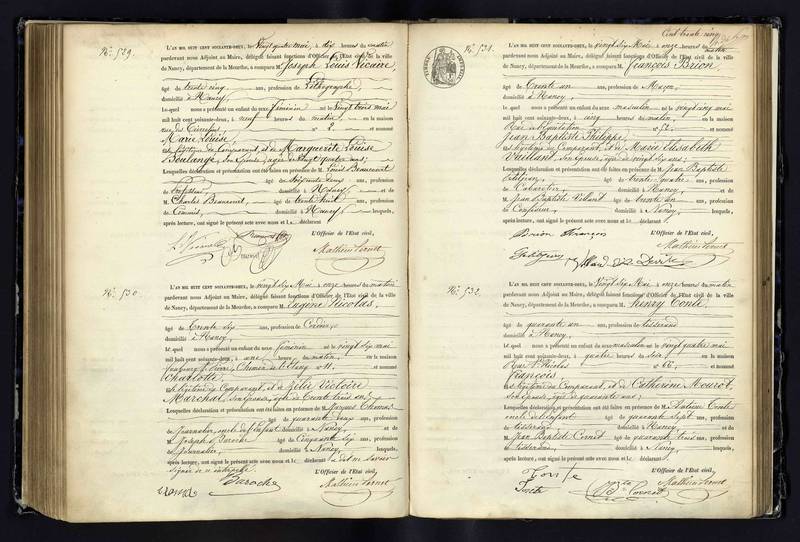 N°. 529.
L'AN MIL HUIT CENT SOIXANTE-DEUX, le Vingt quatre mai, à dix heures du matin
pardevant nous Adjoint au Maire, délégué faisant fonctions d'Officier de l'État civil de la ville
de Nancy, département de la Meurthe, a comparu M. Joseph Louis
âgé de trente cinq ans, profession de Lithographe
domicilié à Nancy
le.quel nous a présenté un enfant du sexe féminin né le Vingt trois mai
mil huit cent soixante-deux, à neuf heures du matin, en la maison
rue des n° 2, et nommé
Marie Louise,
et de Marguerite Louise
Boulangé, son épouse, âgée de Vingt quatre ans;
Lesquelles déclaration et présentation ont été faites en présence de M. Louis Beaucourt
âgé de ans, profession
de Professeur, domicilié à Nancy et de
M. Charles Beaucourt, âgé de trente huit ans, profession
de Commis, domicilié à Nancy lesquels,
après lecture, ont signé le présent acte avec nous et le déclarant
L'Officier de l'État civil,
N°. 530.
L'AN MIL HUIT CENT SOIXANTE-DEUX, le vingt six Mai à onze heures du matin
pardevant nous Adjoint au Maire, délégué faisant fonctions d'Officier de l'État civil de la ville
de Nancy, département de la Meurthe, a comparu M. Eugène Nicolas,
âgé de Trente six ans, profession de Cordier,
domicilié à Nancy
le.quel nous a présenté un enfant du sexe féminin né le vingt six mai
mil huit cent soixante-deux, à une heure du matin, en la maison
n° 11, et nommé
Charlotte,
et légitime du Comparant, et de Zélie Victoire
Marchal, son épouse, âgée de Trente trois ans;
Lesquelles déclaration et présentation ont été faites en présence de M. Jacques Thomas
âgé de quarante deux ans, profession
de Journalier, domicilié à Nancy et de
M. Joseph Baroche âgé de Cinquante six ans, profession
de Journalier, domicilié à Nancy, lesquels,
après lecture, ont signé le présent acte avec nous et le déclarant
L'Officier de l'État civil,
Baroche
Cent trente cinq
N°. 531.
L'AN MIL HUIT CENT SOIXANTE-DEUX, le vingt six Mai à onze heures du matin
pardevant nous Adjoint au Maire, délégué faisant fonctions d'Officier de l'État civil de la ville
de Nancy, département de la Meurthe, a comparu M. François Brion
âgé de Trente un ans, profession de Maçon,
domicilié à Nancy,
le.quel nous a présenté un enfant du sexe masculin né le vingt cinq mai
mil huit cent soixante-deux, à cinq heures du matin, en la maison
Rue de l'Equitation n° 52, et nommé
Jean Baptiste Philippe,
et légitime du Comparant, et de Marie Elisabeth
Vaillant, son épouse, âgée de vingt six ans;
Lesquelles déclaration et présentation ont été faites en présence de M. Jean Baptiste
âgé de trente quatre ans, profession
de Cabaretier, domicilié à Nancy, et de
M. Jean Baptiste Villard âgé de trente un ans, profession
de Confiseur, domicilié à Nancy, lesquels,
après lecture, ont signé le présent acte avec nous et le déclarant
L'Officier de l'État civil,
Brion François
N°. 532.
L'AN MIL HUIT CENT SOIXANTE-DEUX, le vingt six Mai, à onze heures du matin
pardevant nous Adjoint au Maire, délégué faisant fonctions d'Officier de l'État civil de la ville
de Nancy, département de la Meurthe, a comparu M. Henry Conte
âgé de quarante un ans, profession de tisserand
domicilié à Nancy,
le.quel nous a présenté un enfant du sexe masculin né le vingt quatre mai
mil huit cent soixante-deux, à quatre heures du soir en la maison
Rue St. Nicolas n° 66, et nommé
François
et légitime du Comparant, et de Catherine Mourot,
son épouse, âgée de quarante ans;
Lesquelles déclaration et présentation ont été faites en présence de M. Antoine Conte
âgé de quarante sept ans, profession
de tisserand, domicilié à Nancy et de
M. Jean Baptiste Cornet âgé de quarante trois ans, profession
de tisserand, domicilié à Nancy, lesquels,
après lecture, ont signé le présent acte avec nous et le déclarant
L'Officier de l'État civil,
Conte